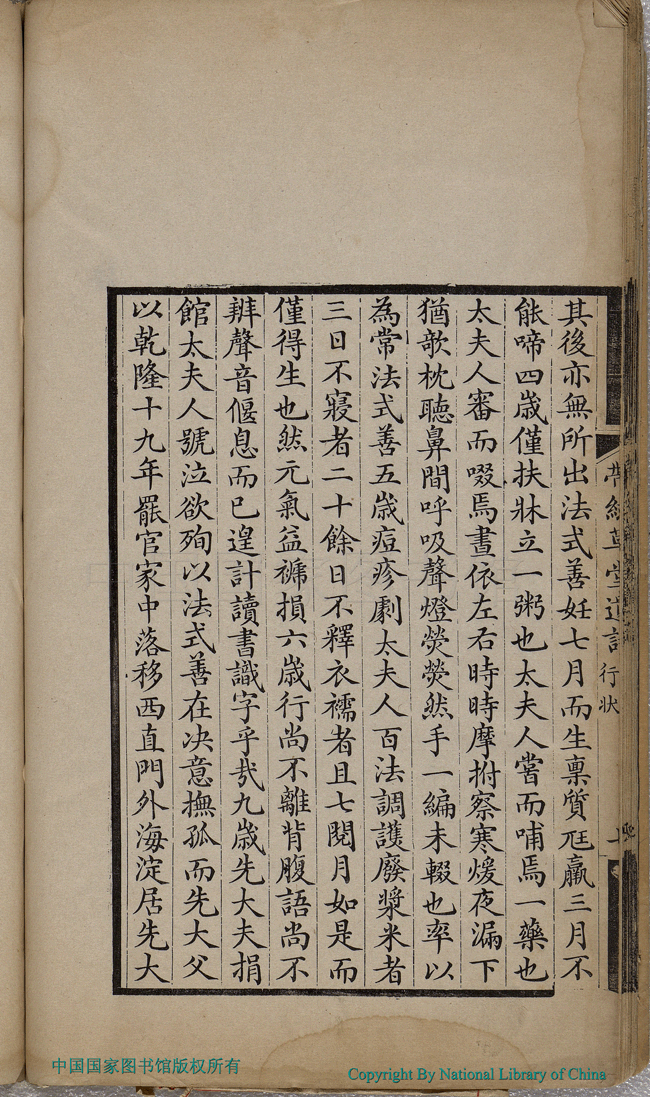 其後亦無所出法式善妊七月而生稟質尫羸三月不
能啼四歲僅扶牀立一粥也太夫人嘗而哺焉一藥也
太夫人審而啜焉晝依左右時時摩拊察寒煖夜漏下
猶欹枕聽鼻間呼吸聲燈熒熒然手一編未輟也率以
為常法式善五歲痘疹劇太夫人百法調護廢漿米者
三日不寢者二十餘日不釋衣襦者且七閱月如是而
僅得生也然元氣益褫損六歲行尚不離背腹語尚不
辨聲音偃息而已遑計讀書識字乎哉九歲先大夫捐
館太夫人號泣欲殉以法式善在決意撫孤而先大父
以乾隆十九年罷官家中落移西直門外海淀居先大
草堂遺詩
行狀
中国国家图书馆版权所有
Copyright By National Library of China